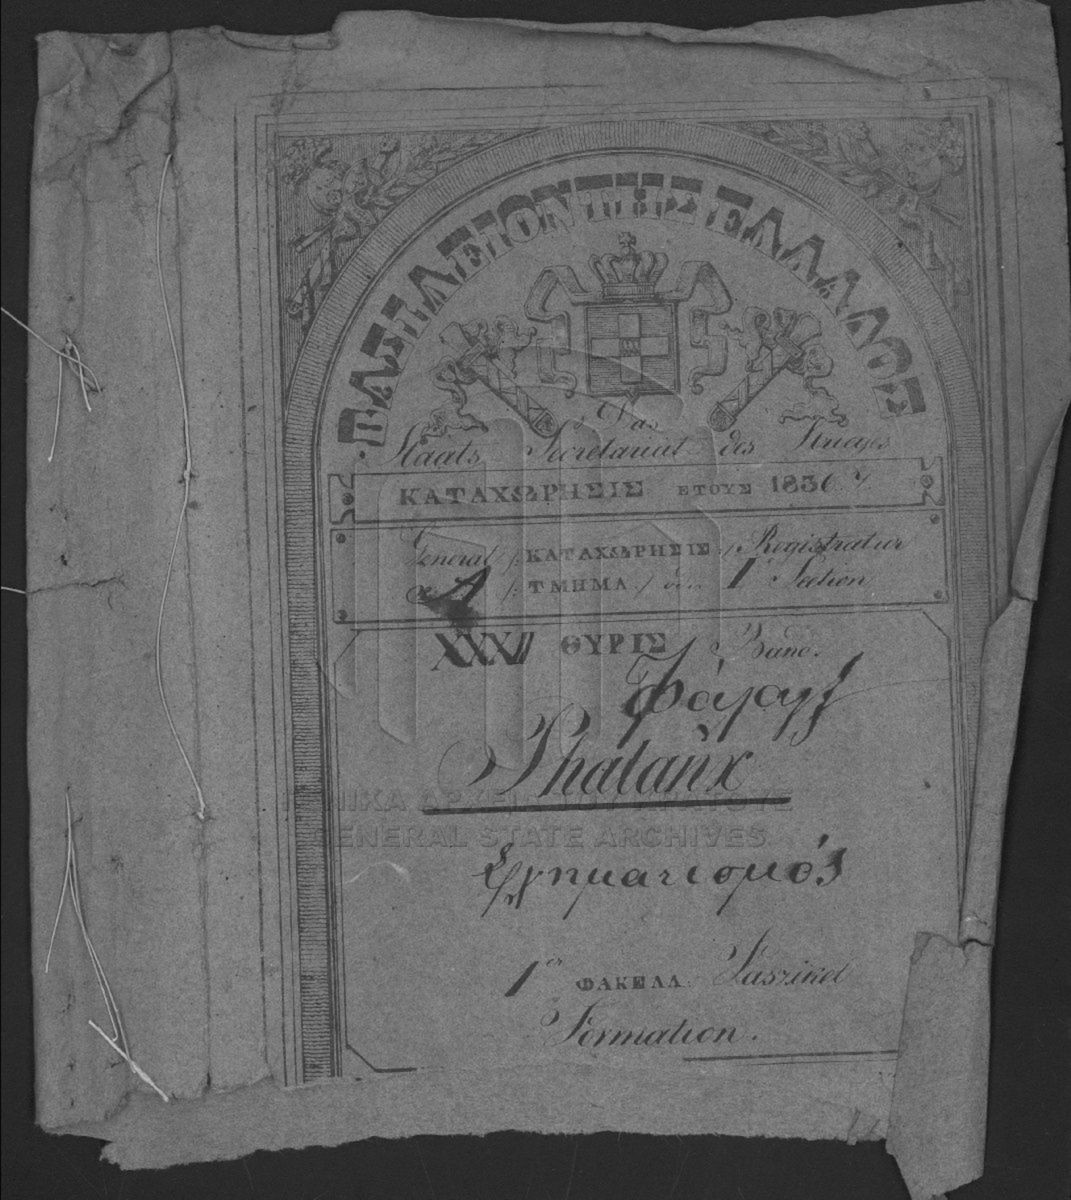 ΒΑΣΙΛΕΙΟΝ ΤΗΣ ΕΛΛΑΔΟΣ
Das
Staats Secretariat des Krieges
ΚΑΤΑΧΩΡΗΣΙΣ ΕΤΟΥΣ 1836. 7
General /: ΚΑΤΑΧΩΡΗΣΙΣ :/ Registratur
A /: ΤΜΗΜΑ :/ der I Section
XXXII ΘΥΡΙΣ Band.
Φάλαγξ
Phalanx
ΓΕΝΙΚΑ ΑΡΧΕΙΑ ΤΟΥ ΚΡΑΤΟΥΣ
GENERAL STATE ARCHIVES
Σχηματισμός
1er ΦΑΚΕΛΛ. Faszikel
Formation.